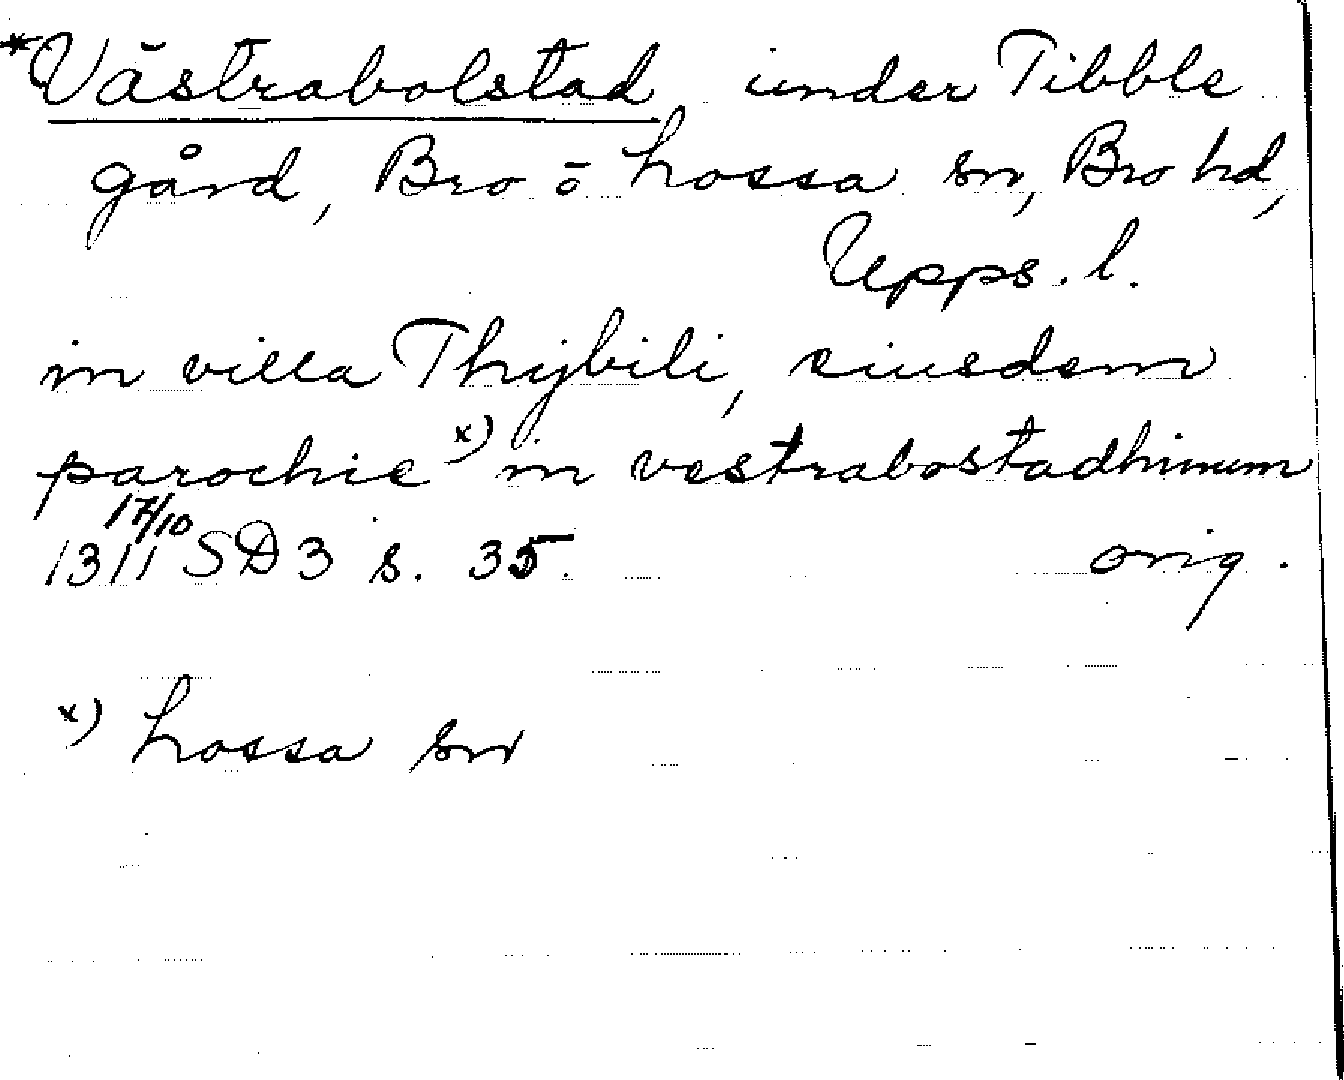 *Västrabolstad under Tibble
gård, Bro o Lossa sn, Bro hd,
Upps. l.
in villa Thijbili, eiusdem
parochie x) in vestrabostadhinum
17/10
1311 SD 3 s. 35. orig.
x) Lossa sn